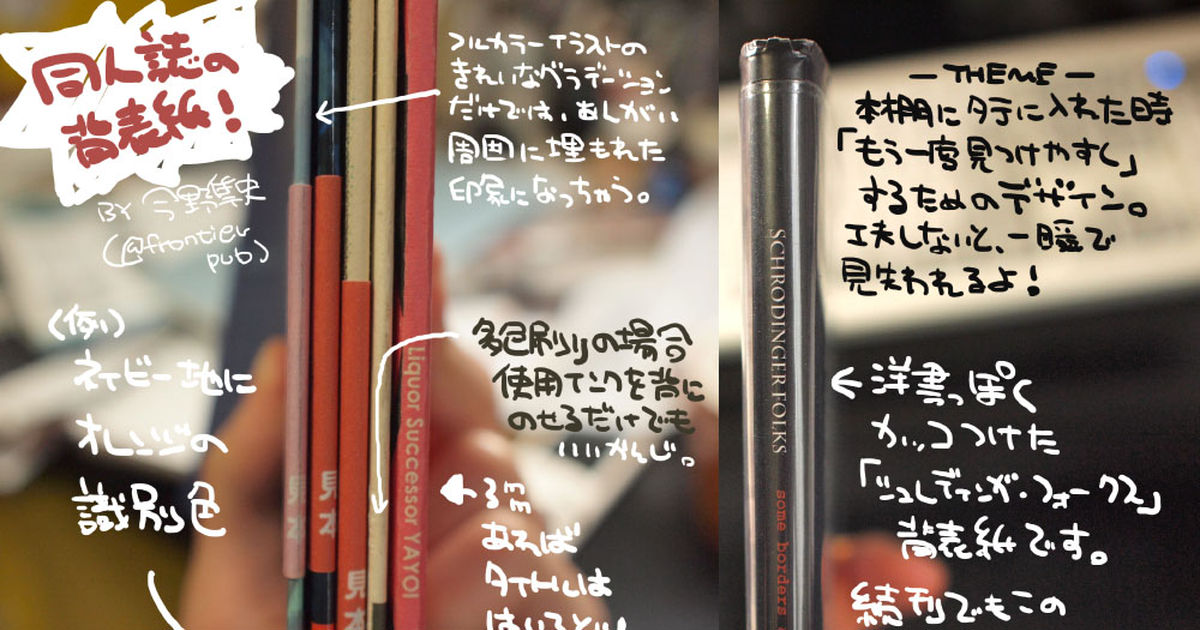 同人誌の
背表紙!
BY 今野隆史
(@frontier
pub)
フルカラーイラストの
きれいなグラデーション
だけでは、あんがい
周囲に埋もれた
印象になっちゃう。
(例)
ネイビー地に
オレンジの
識別色
多色刷りの場合
使用インクを背に
のせるだけでも
いいかんじ。
あれば
タイトルは
はいるといい
Liquor Successor YAYOI
見本
見本
見本
— THEME —
本棚にタテに入れた時
「もう一度見つけやすく」
するためのデザイン。
工夫しないと、一瞬で
見失われるよ!
SCHRODINGER FOLKS
some borders
洋書っぽく
カッコつけた
「シュレディンガ・フォークス」
背表紙です。
続刊でもこの